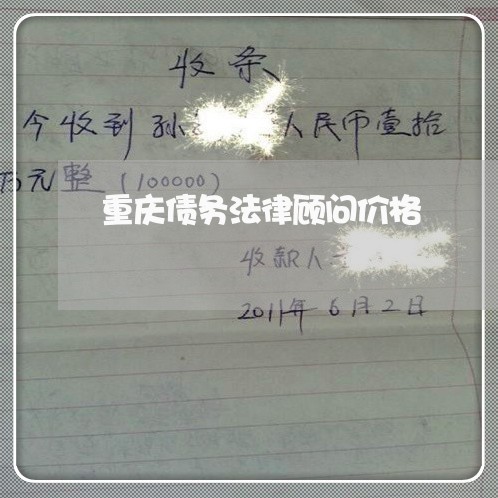 收条
今收到孙 人民币壹拾
万元整（100000）
重庆债务法律顾问价格
收款人
2011年6月2日